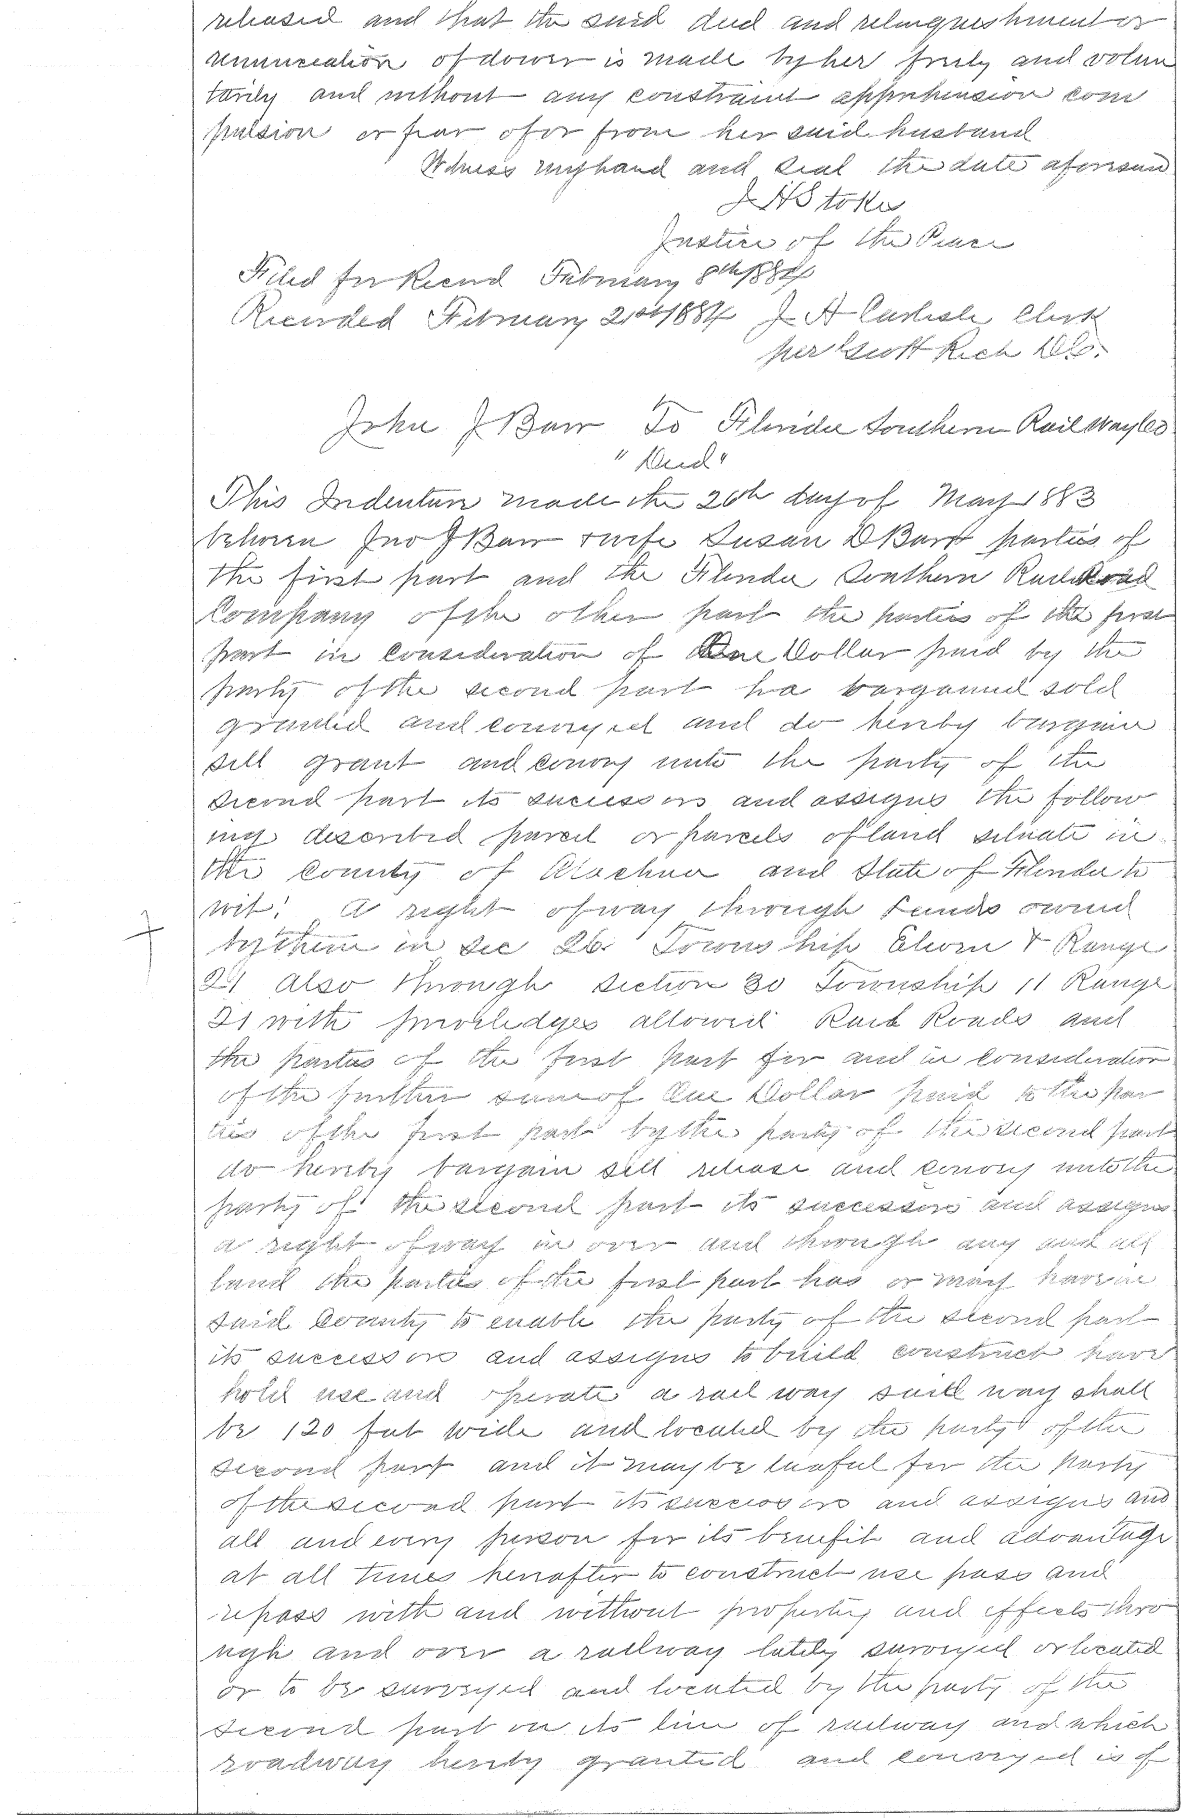 released and that the said deed and relinquishment or
renunciation of dower is made by her freely and volun
tarily and without any constraint apprehension com
pulsion or fear of or from her said husband
Witness my hand and seal the date aforesaid
J H Stokes
Justice of the Peace
Filed for Record February 8th 1884
Recorded February 21st 1884 J A Carlisle Clerk
per Scott Rich D.C.
John J Barr To Florida Southern Rail Way Co
"Deed"
This Indenture made the 26th day of May 1883
between Jno J Barr & wife Susan D Barr parties of
the first part and the Florida Southern Rail Road
Company of the other part the parties of the first
part in consideration of One Dollar paid by the
party of the second part ha bargained sold
granted and conveyed and do hereby bargain
sell grant and convey unto the party of the
second part its successors and assigns the follow
ing described parcel or parcels of land situate in
the County of Alachua and State of Florida to
wit: A right of way through Lands owned
by them in Sec 26 Township Eleven & Range
21 also through Section 30 Township 11 Range
21 with priviledges allowed Rail Roads and
the parties of the first part for and in consideration
of the further sum of One Dollar paid to the par
ties of the first part by the party of the second part
do hereby bargain sell release and convey unto the
party of the second part its successors and assigns
a right of way in over and through any and all
land the parties of the first part has or may have in
said County to enable the party of the second part
its successors and assigns to build construct have
hold use and operate a rail way said way shall
be 120 feet wide and located by the party of the
second part and it may be lawful for the party
of the second part its successors and assigns and
all and every person for its benefit and advantage
at all times hereafter to construct use pass and
repass with and without property and effects thro
ugh and over a railway lately surveyed or located
or to be surveyed and located by the party of the
second part on its line of railway and which
roadway hereby granted and conveyed is of